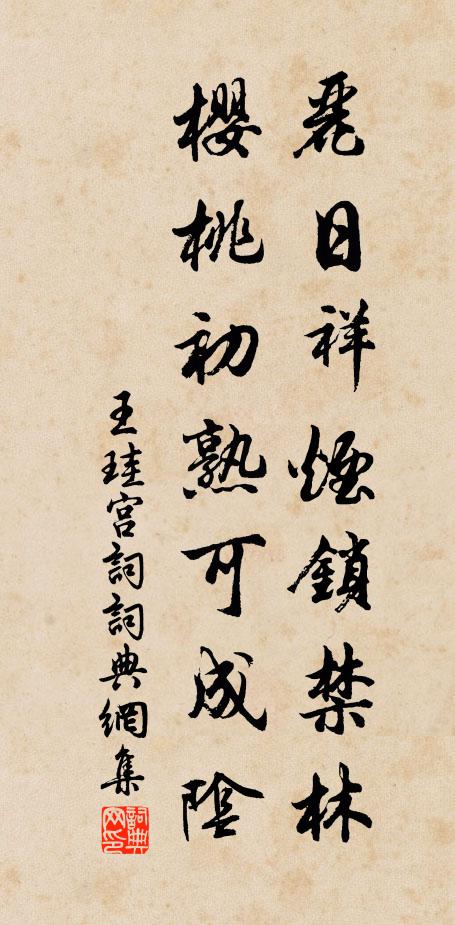 麗日祥煙鎖禁林
櫻桃初熟可成陰
王珪宮詞詞典網集
詞典网印